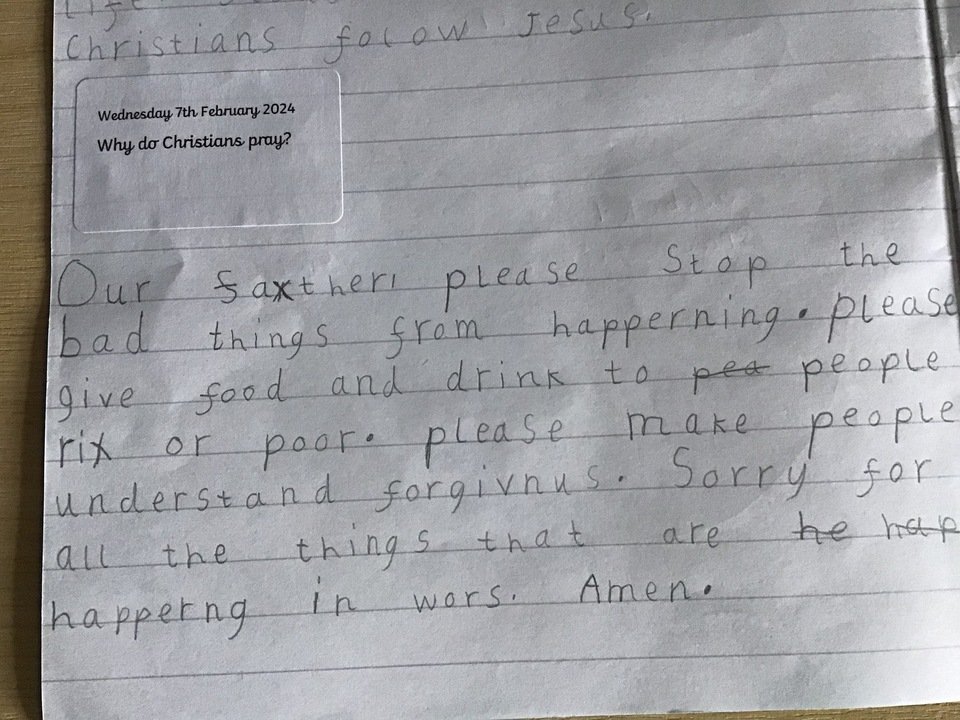 Life
Christians folow Jesus.
Wednesday 7th February 2024
Why do Christians pray?
Our faxther please Stop the
bad things from happerning. please
give food and drink to pea people
rix or poor. please make people
understand forgivnus. Sorry for
all the things that are he hap
happerng in wors. Amen.